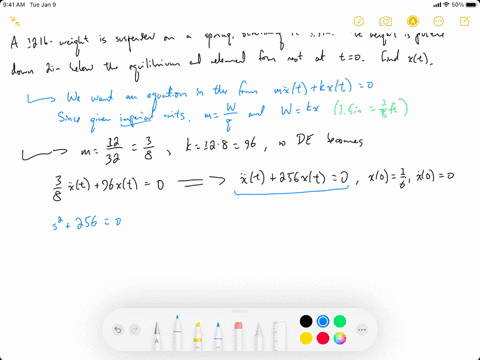 9:41 AM Tue Jan 9 50%
A 12 lb- weight is suspended on a spring,
down 2in below the equilibrium and released from rest at t=0. Find x(t).
We want an equation in the form mẍ(t) + kx(t) = 0
Since given imperial units, m = W/g and W = kx (1.5in = 1/8 ft)
m = 12/32 = 3/8, k = 12·8 = 96, so DE becomes
3/8 ẍ(t) + 96x(t) = 0 ⟹ ẍ(t) + 256x(t) = 0, x(0) = 1/6, ẋ(0) = 0
s² + 256 = 0